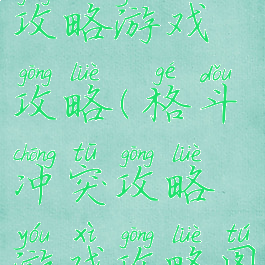 攻略游戏
gōng lüè gé dǒu
攻略(格斗
chōng tū gōng lüè
冲突攻略
yóu xì gōng lüè tú
游戏攻略图